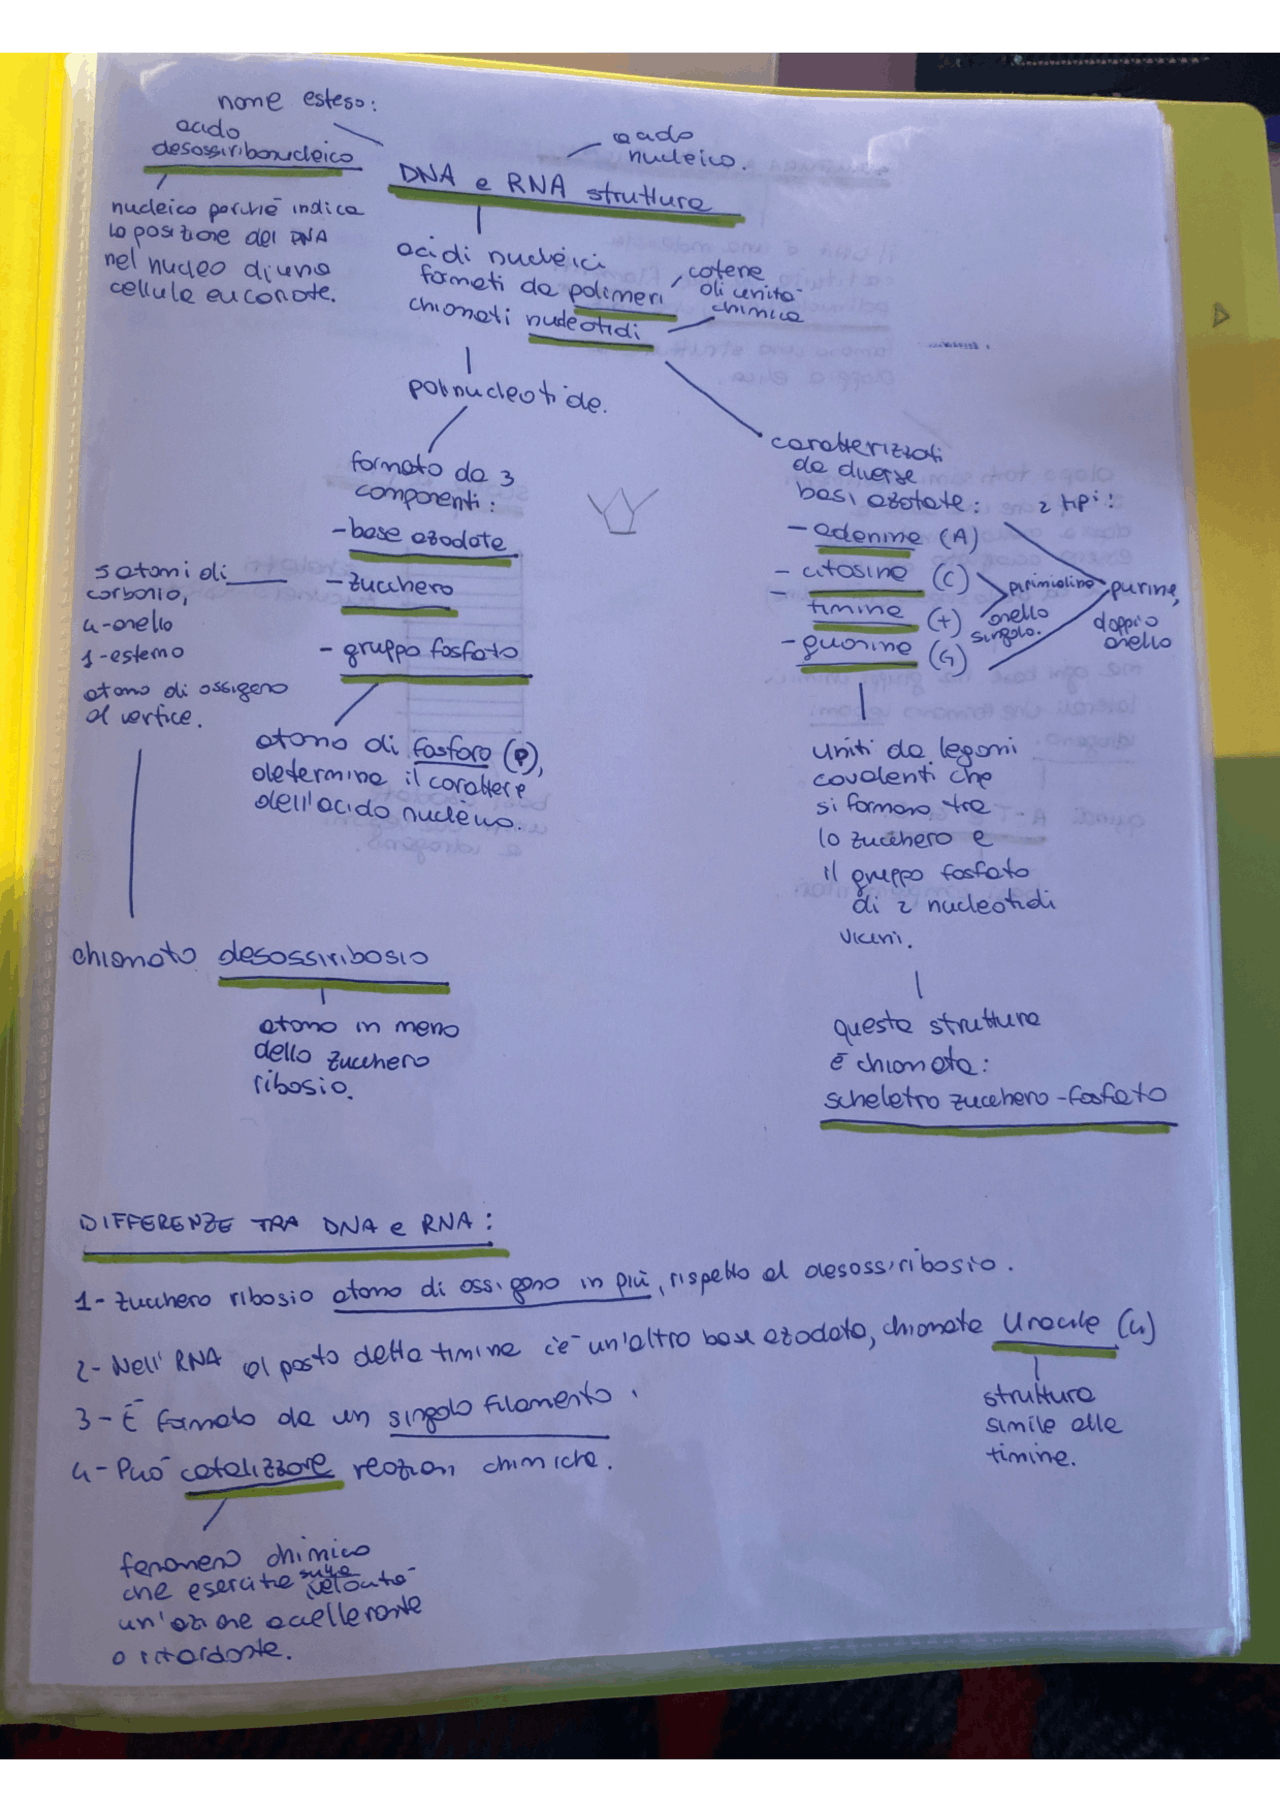 nome esteso:
acido
desossiribonucleico
acido
nucleico.
DNA e RNA struttura
nucleico perchè indica
la posizione del DNA
nel nucleo di una
cellula eucariote.
acidi nucleici
formati da polimeri
chiamati nucleotidi
catene
di unità
chimica
polinucleotide.
formato da 3
componenti:
-base azodate
-zucchero
- gruppo fosfato
5 atomi di
carbonio,
4-anello
1-esterno
atomo di ossigeno
al vertice.
atomo di fosforo (P),
determina il carattere
dell'acido nucleico.
chiamato desossiribosio
atomo in meno
dello zucchero
ribosio.
caratterizzati
da diverse
basi azotate: 2 tipi:
- adenina (A)
- citosina (C)
- timina (t)
- guanina (G)
pirimidina
anello
singolo.
purine,
doppio
anello
uniti da legami
covalenti che
si formano tra
lo zucchero e
il gruppo fosfato
di 2 nucleotidi
vicini.
questa struttura
è chiamata:
scheletro zucchero-fosfato
DIFFERENZE TRA DNA e RNA:
1- zucchero ribosio atomo di ossigeno in più, rispetto al desossiribosio.
2- Nell'RNA al posto della timina c'è un'altro base azodata, chiamata Uracile (U)
struttura
simile alla
timina.
3- È formato da un singolo filamento.
4- Può catalizzare reazioni chimiche.
fenomeno chimico
che esercita sulla velocità
un'azione accellerante
o ritardante.